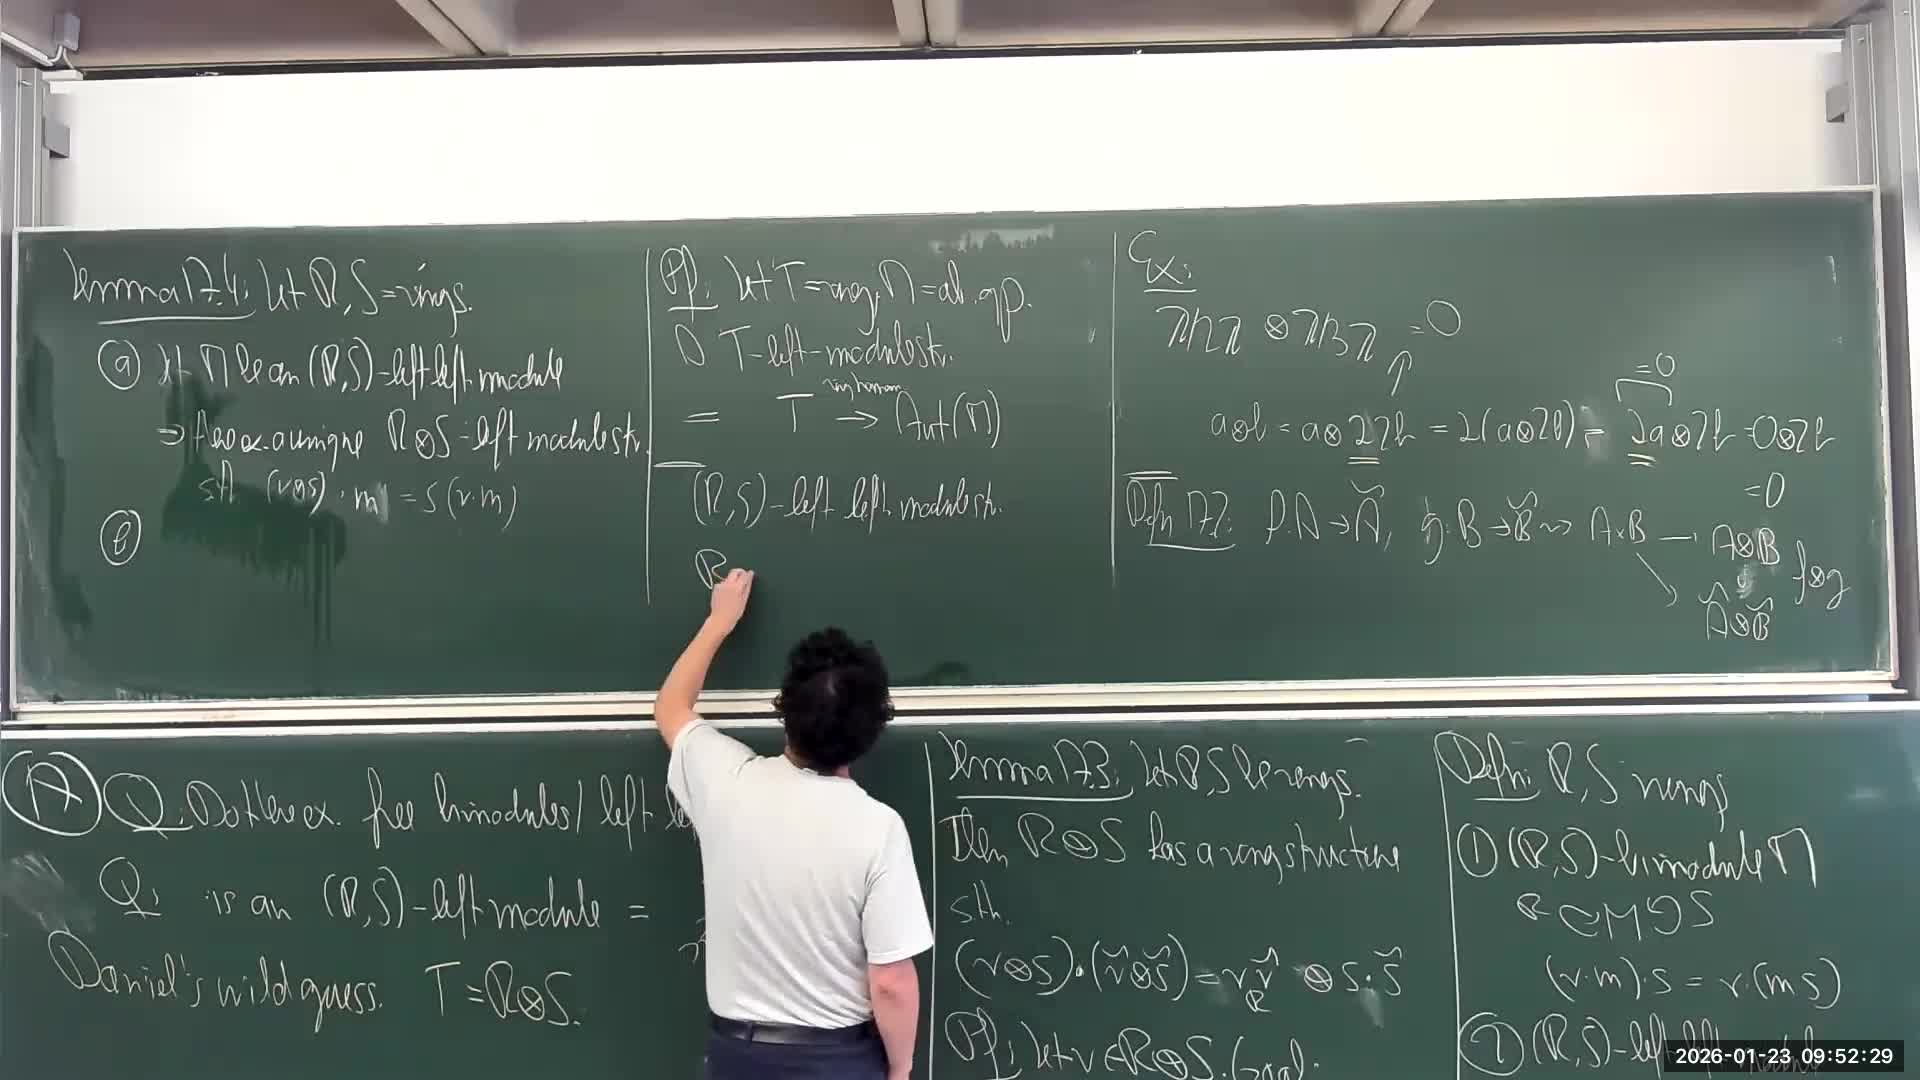 Lemma 17.4: Let R, S = rings.
(a) Let M be an (R,S)-left left module
⇒ there ex. a unique R⊗S-left module str.
st (r⊗s)·m = s(r·m)
(b)
Pf: Let T = ring, M = ab. gp.
T-left-module str.
= T → Aut(M)
ring homom
(R,S)-left left module str.
R
Ex:
ℤ/2ℤ ⊗ ℤ/3ℤ = 0
↑
a⊗b = a⊗22b = 2(a⊗2b) = 2a⊗2b = 0⊗2b
=0
= 0
Defn 17.2: f: A → Ã, g: B → B̃ ⇝ A×B → A⊗B
f⊗g
Ã⊗B̃
(A) Q: Do there ex. free bimodules/left
Q: is an (R,S)-left module =
Daniel's wild guess. T = R⊗S.
Lemma 17.3: Let R, S be rings.
Then R⊗S has a ring structure
sth.
(r⊗s)·(r̃⊗s̃) = r·r̃ ⊗ s·s̃
R
Pf: Let v ∈ R⊗S. Goal:
Defn: R, S rings
① (R,S)-bimodule M
R ↻ M ↺ S
(r·m)·s = r·(ms)
② (R,S)-left left
2026-01-23 09:52:29